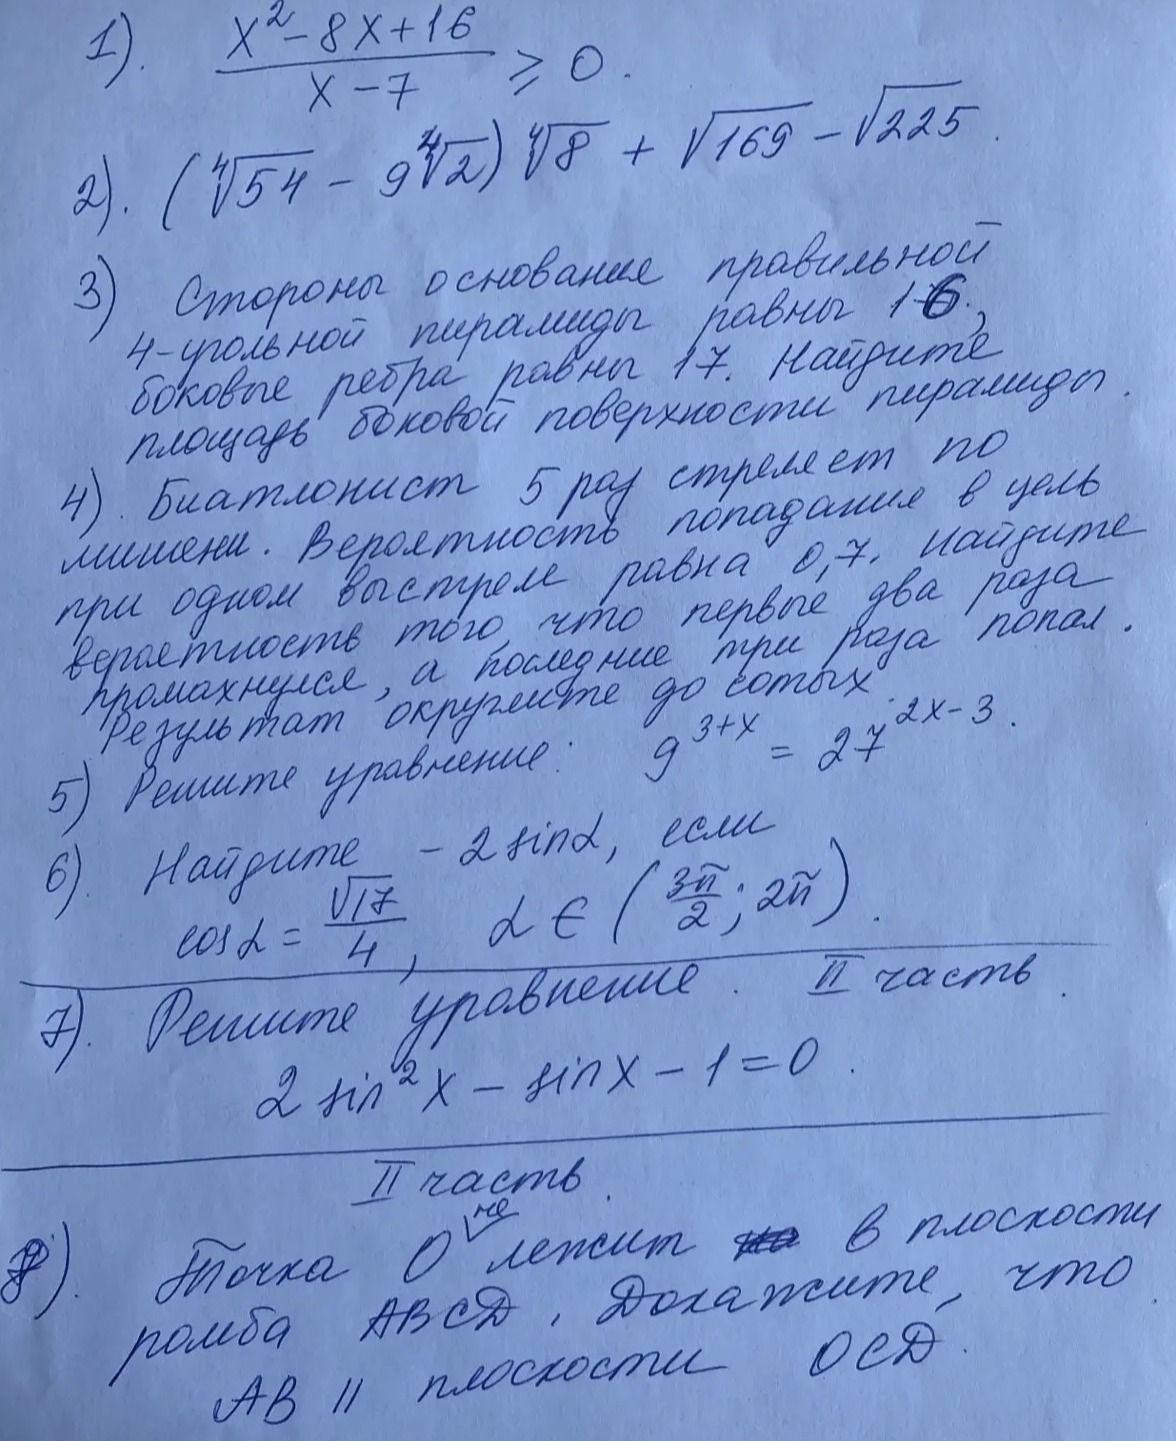 1). (x² - 8x + 16)/(x - 7) ≥ 0.
2). (⁴√54 - 9⁴√2) ⁴√8 + √169 - √225.
3) Стороны основания правильной
4-угольной пирамиды равны 16,
боковые ребра равны 17. Найдите
площадь боковой поверхности пирамиды.
4). Биатлонист 5 раз стреляет по
мишени. Вероятность попадания в цель
при одном выстреле равна 0,7. Найдите
вероятность того, что первые два раза
промахнулся, а последние три раза попал.
Результат округлите до сотых.
5) Решите уравнение: 9^(3+x) = 27^(2x-3).
6). Найдите - 2 sinα, если
cosα = √17/4, α ∈ (3π/2; 2π).
7). Решите уравнение. II часть.
2 sin²x - sinx - 1 = 0.
II часть.
8). Точка O не лежит в плоскости
ромба ABCD. Докажите, что
AB || плоскости OCD.